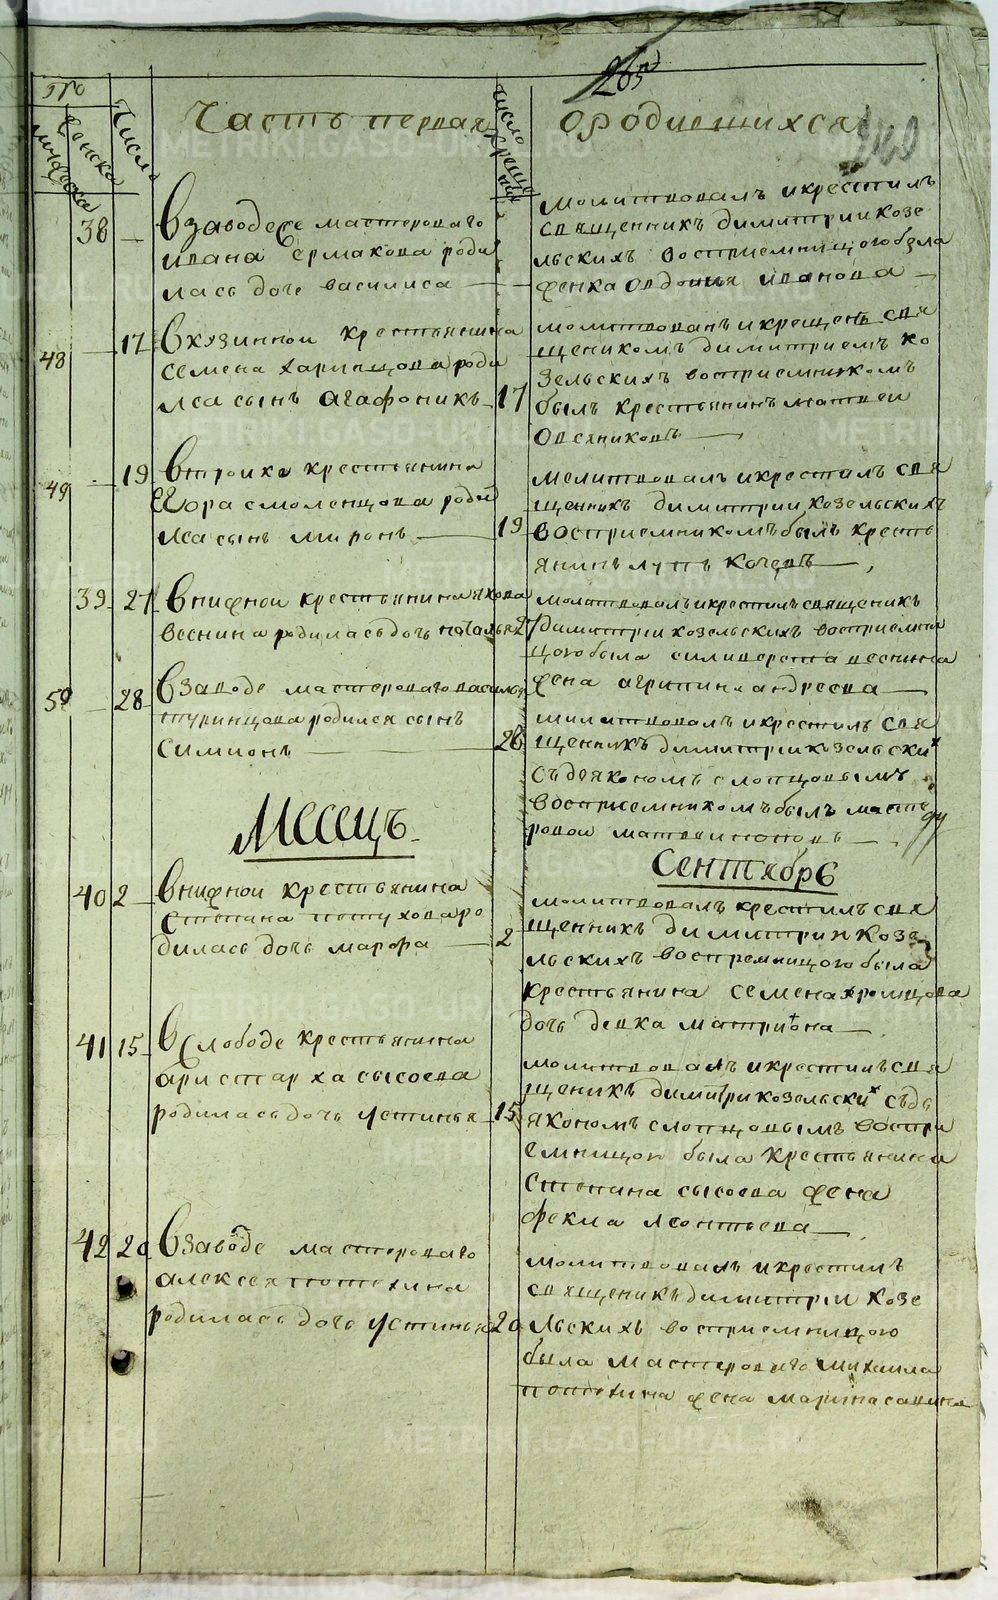 265
Что
мужеска
женска
Число
Часть первая
число креще ния
ородившихся
340
38
взаводесе мастероваго
ивана ермакова роди
лась доче василиса
молитвовалъ икрестилъ
священникъ димитрии козе
льскихъ восприемницою была
женка овдотья иванова
48 17
вказиннои крестьянина
семена харинцова роди
лса сынъ агафоникъ 17
молитвованъ икрещенъ свя
щеникомъ димитриемъ ко
зельскихъ восприемникомъ
былъ крестьянинъ матвеи
Овсяниковъ
49 19
втроике крестьянина
Егора смоленцова роди
лса сынъ миронъ 19
молитвовалъ икрестилъ свя
щенникъ димитрии козельскихъ
восприемникомъ былъ кресть
янинъ лупъ Кочевъ
39 27
внижнои крестьянина якова
веснина родиласьдочь наталья 27
молитвовалъ икрестилъ священикъ
димитрии козельскихъ восприемни
цою была силиверста веснина
жена агрипина андреева
50 28
взаводе мастероваго василья
туринцова родился сынъ
симионъ 28
молитвовалъ икрестилъ свя
щенникъ димитрии козельских
съдьякономъ слопцовымъ
восприемникомъ былъ масте
ровои матвеи поповъ
Месецъ
Сентябрь
40 2
внижнои крестьянина
степана петухова ро
дилась дочь марфа 2
молитвовалъ крестилъ свя
щенникъ димитрии козе
льскихъ воспремницою была
крестьянина семена хромцова
дочь девка матриона
41 15
вСлободе крестьянина
аристарха сысоева
родиласьдочь устинья 15
молитвовалъ икрестилъ свя
щеникъ димитри козельских съдь
якономъ слопцовымъ воспри
емницою была крестьянина
Степана сысоева жена
фекла леонтьева
42 20
взаводе мастероваго
алексея потехина
родилась дочь устинья 20
молитвовалъ икрестилъ
священникъ димитрии козе
льскихъ восприемницою
была мастероваго михаила
потехина жена марина савина
METRIKI.GASO-URAL.RU